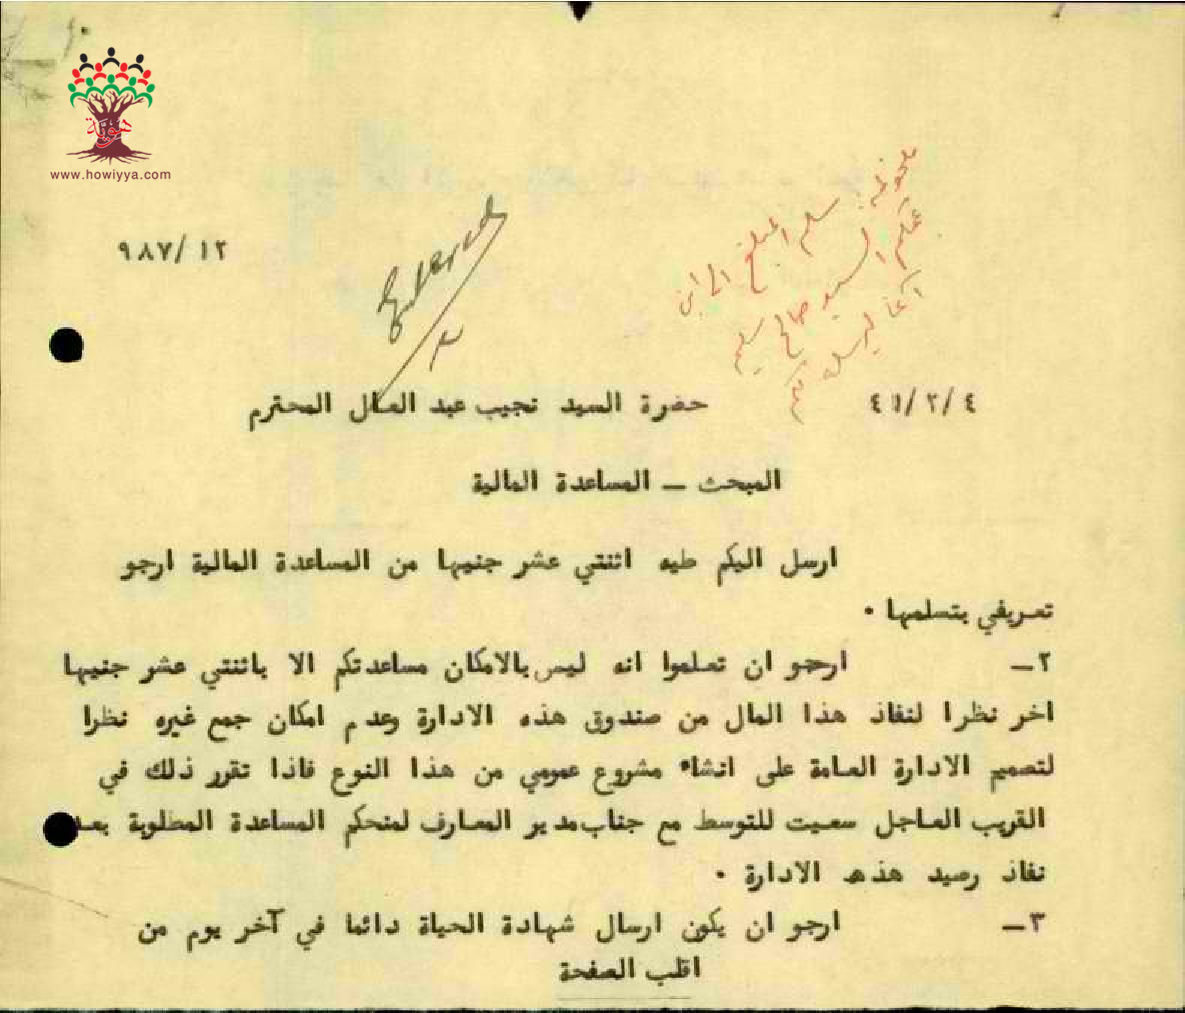 هوية
www.howiyya.com
ملحوظة: سلم المبلغ الى ابن
عمكم السيد صالح سليم
آغا ليرسله لكم
٩٨٧/١٢
Entered
٤١/٢/٤
حضرة السيد نجيب عبد العال المحترم
المبحث – المساعدة المالية
ارسل اليكم طيه اثنتي عشر جنيها من المساعدة المالية ارجو
تعريفي بتسلمها .
٢– ارجو ان تعلموا انه ليس بالامكان مساعدتكم الا باثنتي عشر جنيها
اخر نظرا لنفاذ هذا المال من صندوق هذه الادارة وعدم امكان جمع غيره نظرا
لتصميم الادارة العامة على انشاء مشروع عمومي من هذا النوع فاذا تقرر ذلك في
القريب العاجل سعيت للتوسط مع جناب مدير المعارف لمنحكم المساعدة المطلوبة بعد
نفاذ رصيد هذه الادارة .
٣– ارجو ان يكون ارسال شهادة الحياة دائما في آخر يوم من
اقلب الصفحة